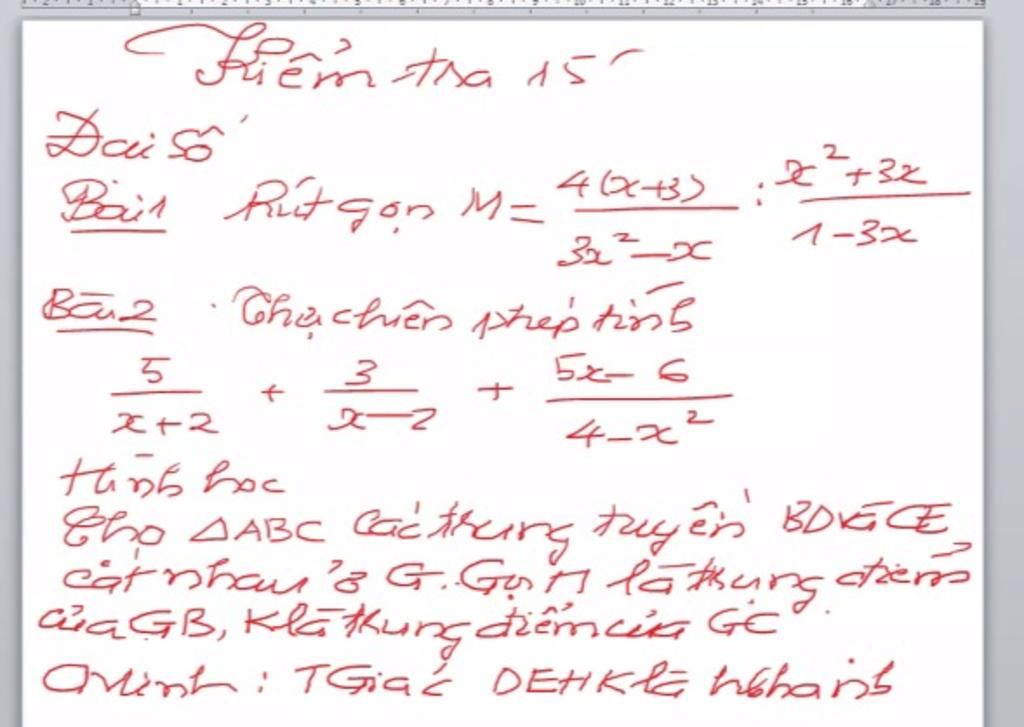 Kiểm tra 15'
Đại Số
Bài 1 Rút gọn M = 4(x+3) / 3x² - x : x² + 3x / 1 - 3x
Bài 2 Thực hiện phép tính
5 / x+2 + 3 / x-2 + 5x - 6 / 4 - x²
Hình học
Cho △ABC các trung tuyến BD và CE
cắt nhau ở G. Gọi H là trung điểm
của GB, K là trung điểm của GC
CMinh: TGiác DEHK là hbhành